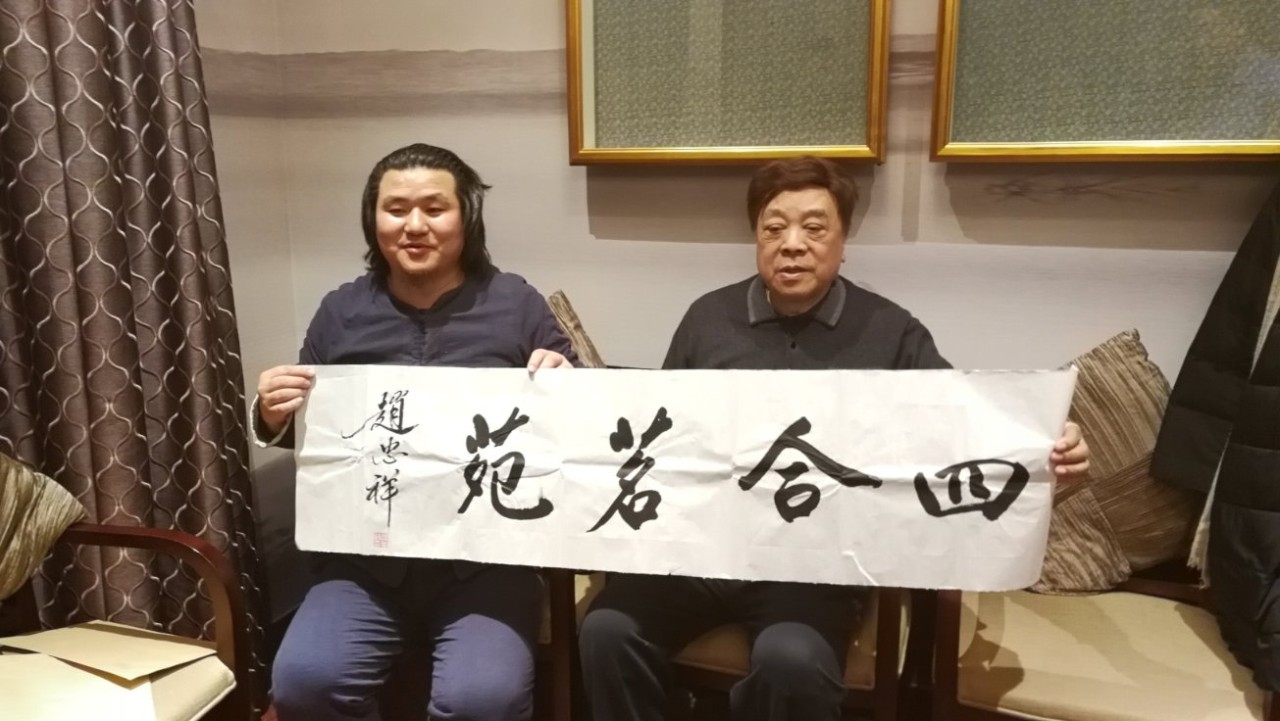 四合茗苑
趙忠祥